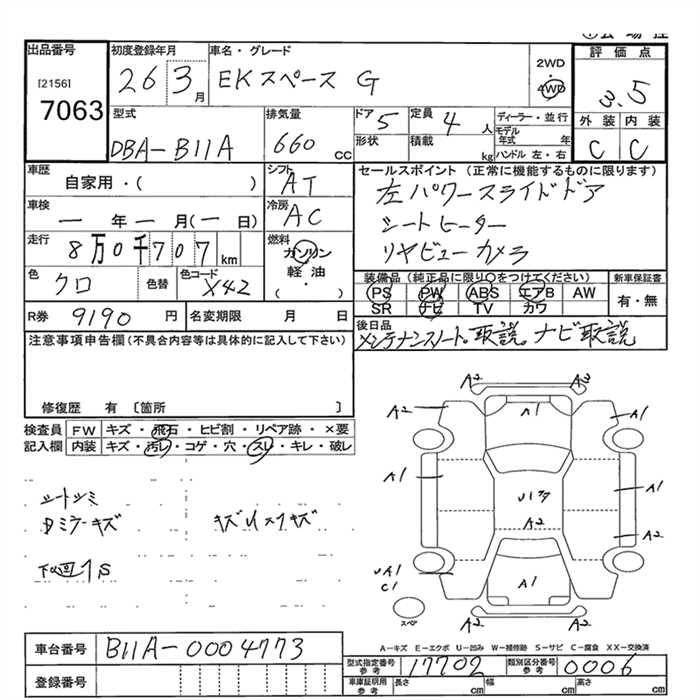 出品番号
[2156]
7063
初度登録年月
26 3月
車名・グレード
EKスペース G
2WD
4WD
評価点
3.5
外装 内装
C C
型式
DBA-B11A
排気量
660 cc
ドア 5
形状
定員 4 人
積載 kg
ディーラー・並行
モデル年式 年
ハンドル 左・右
車歴
自家用・( )
シフト AT
車検
ー年ー月(ー日)
冷房 AC
走行
8万0千707km
燃料
ガソリン
軽油
・( )
色
クロ
色替
色コード
X42
セールスポイント(正常に機能するものに限ります)
左パワースライドドア
シートヒーター
リヤビューカメラ
装備品(純正品に限り○をつけてください)
PS PW ABS エアB AW
SR ナビ TV カワ
新車保証書
有・無
R券 9190 円
名変期限 月 日
後日品
メンテナンスノート。取説。ナビ取説
注意事項申告欄(不具合内容等は具体的に記入して下さい)
修復歴 有〔箇所 〕
検査員 FW キズ・飛石・ヒビ割・リペア跡・×要
記入欄 内装 キズ・汚レ・コゲ・穴・スレ・キレ・破レ
シートシミ
キズ
下回りS
A2 A2
A2 A1 A1
A1 A1
A2
A2
A1
C1
スペア
A-キズ E-エクボ U-凹み W-補修跡 S-サビ C-腐食 XX-交換済
車台番号 B11A-0004773
登録番号
型式指定番号参考 17702
類別区分番号参考 0006
車庫証明用参考 長さ cm 幅 cm 高さ cm